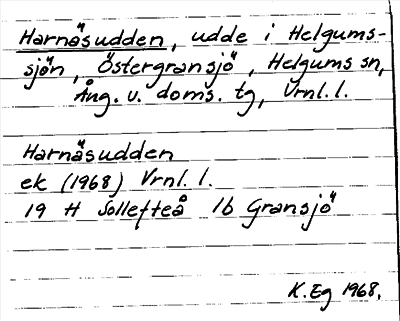 Harnäsudden, udde i Helgums-
sjön, Östergransjö, Helgums sn,
Ång. v. doms. tg, Vrnl. l.
Harnäsudden
ek (1968) Vrnl. l.
19 H Sollefteå 1b Gransjö
K. Eg 1968.